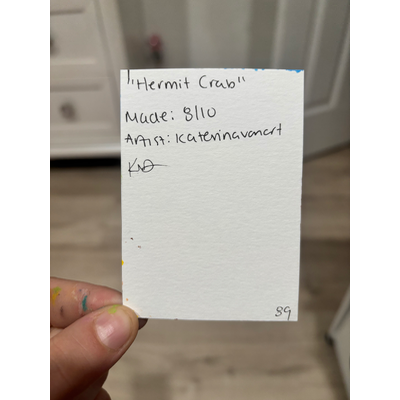 "Hermit Crab"
Made: 8/10
Artist: Katerinavonart
39